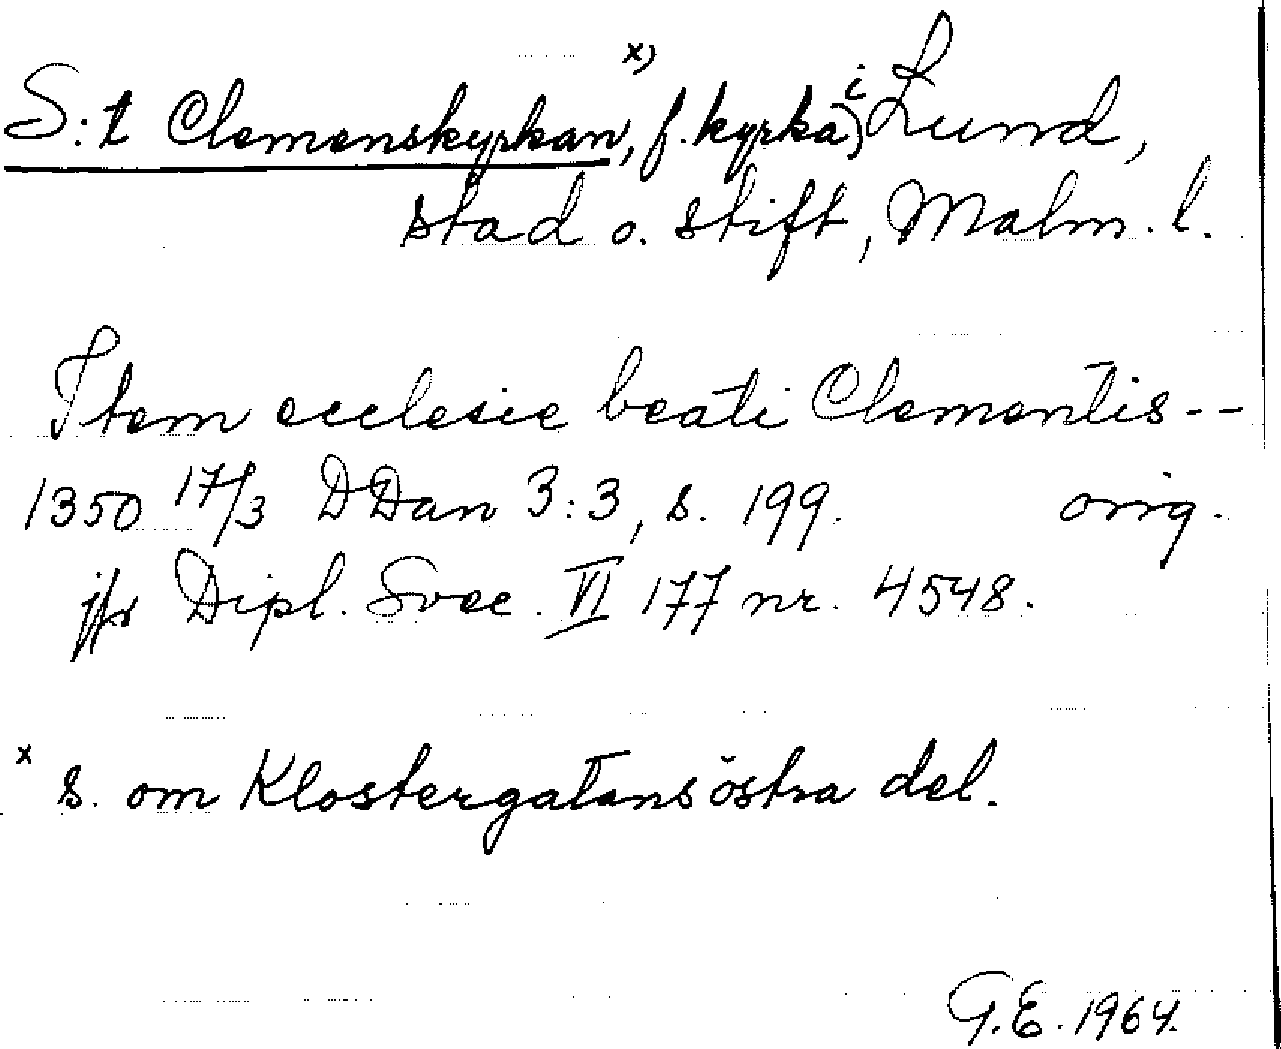 S:t Clemenskyrkan, x) f. kyrka) i Lund,
stad o. stift, Malm. l.
Item ecclesie beati Clementis --
1350 17/3 DDan 3:3, s. 199. orig.
jfr Dipl. Svec. VI 177 nr. 4548.
x s. om Klostergatans östra del.
G.E. 1964.